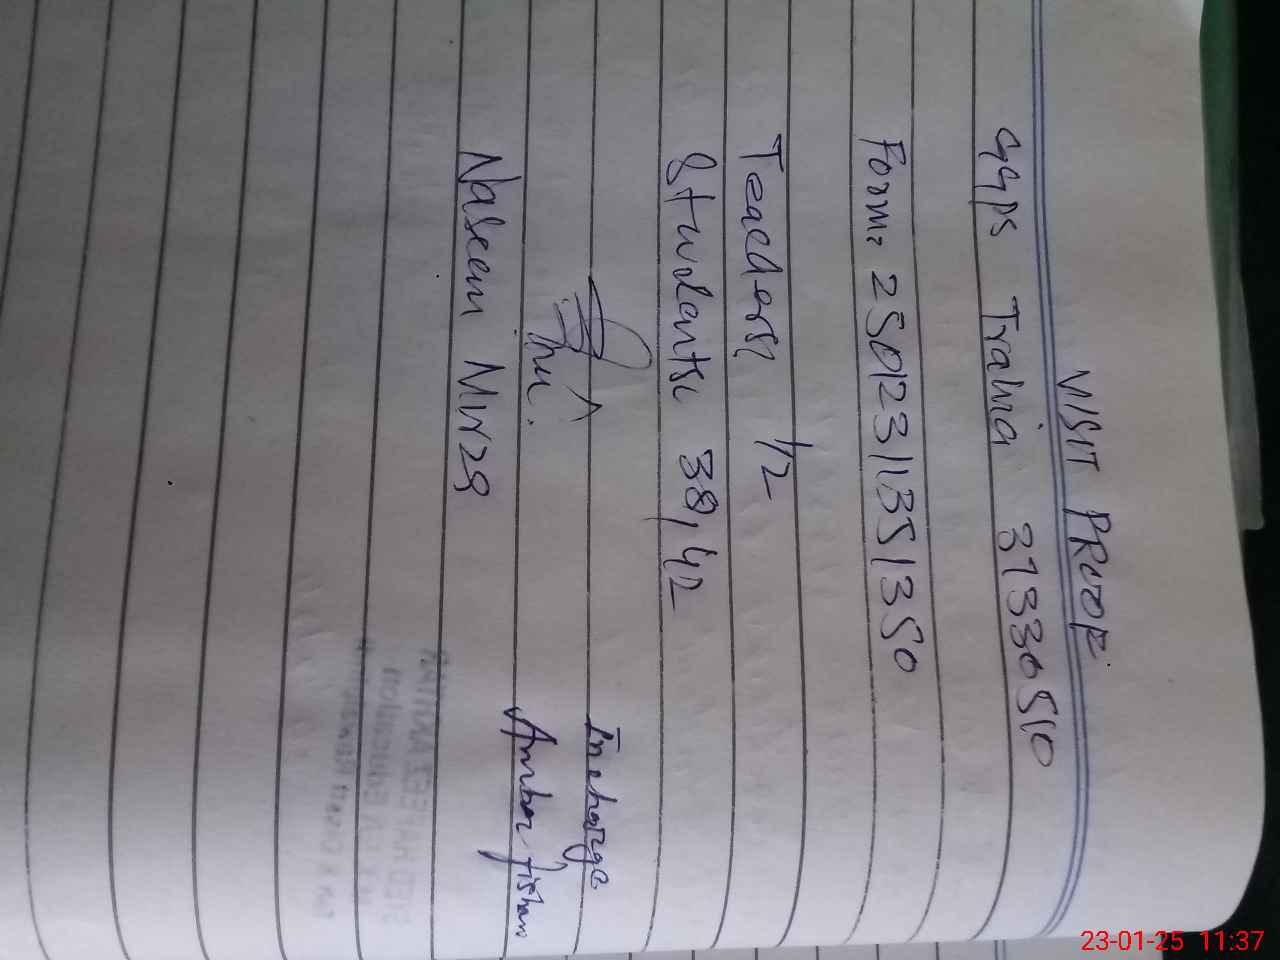 VISIT PROOF
GGPS Tralria 37330510
Form: 25012311351350
Teachers: 1/2
Students: 38,42
Naseem MW28
Incharge
Amber Jishan
23-01-25 11:37